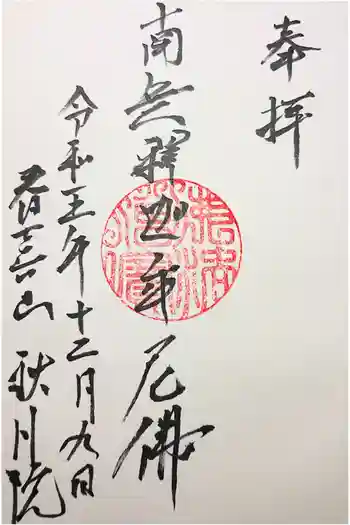 奉拝
南無釋迦牟尼佛
令和五年十二月九日
春喜山 秋月院